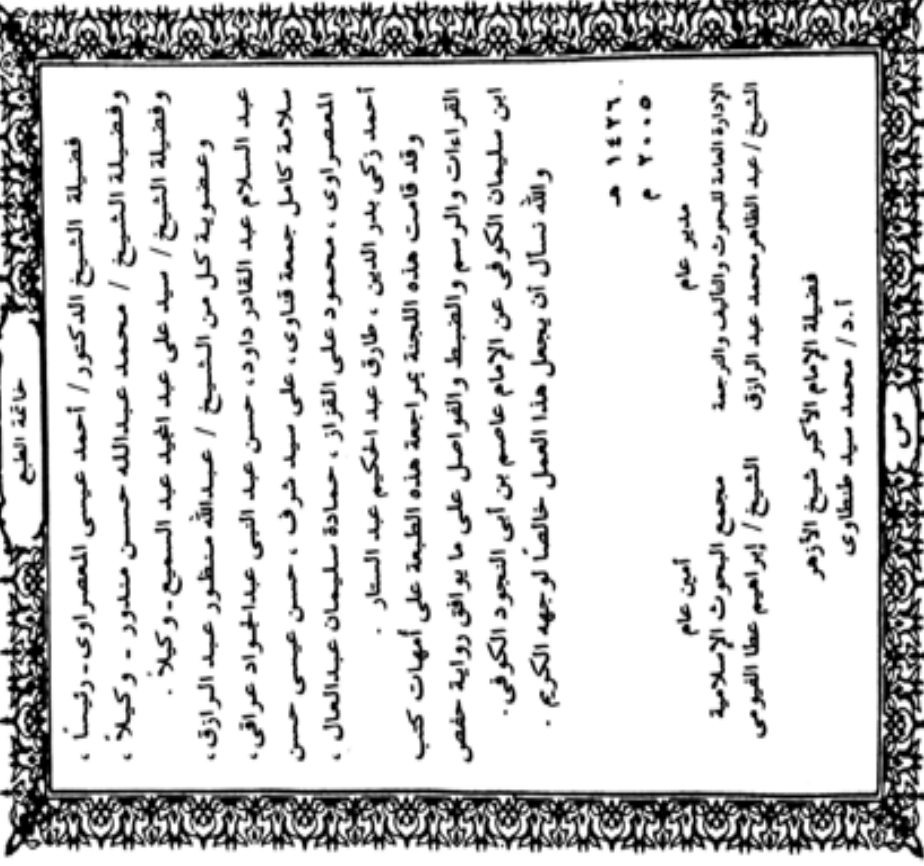 خاتمة الطبع
فضيلة الشيخ الدكتور / أحمد عيسى المعصراوى - رئيسًا ،
وفضيلة الشيخ / محمد عبدالله حسن مندور - وكيلاً ،
وفضيلة الشيخ / سيد على عبد المجيد عبد السميع - وكيلاً .
وعضوية كل من الشيخ / عبدالله منظور عبد الرازق ،
عبد السلام عبد القادر داود ، حسن عبد النبى عبدالجواد عراقى ،
سلامة كامل جمعة قناوى ، على سيد شرف ، حسن عيسى حسن
المعصراوى ، محمود على القزاز ، حمادة سليمان عبدالعال ،
أحمد زكى بدر الدين ، طارق عبد الحكيم عبد الستار .
وقد قامت هذه اللجنة بمراجعة هذه الطبعة على أمهات كتب
القراءات والرسم والضبط والفواصل على ما يوافق رواية حفص
ابن سليمان الكوفى عن الإمام عاصم بن أبى النجود الكوفى .
والله نسأل أن يجعل هذا العمل خالصًا لوجهه الكريم .
١٤٢٦ هـ
٢٠٠٥ م
مدير عام
الإدارة العامة للبحوث والتأليف والترجمة
الشيخ / عبد الظاهر محمد عبد الرازق
أمين عام
مجمع البحوث الإسلامية
الشيخ / إبراهيم عطا الفيومى
فضيلة الإمام الأكبر شيخ الأزهر
أ . د / محمد سيد طنطاوى
س